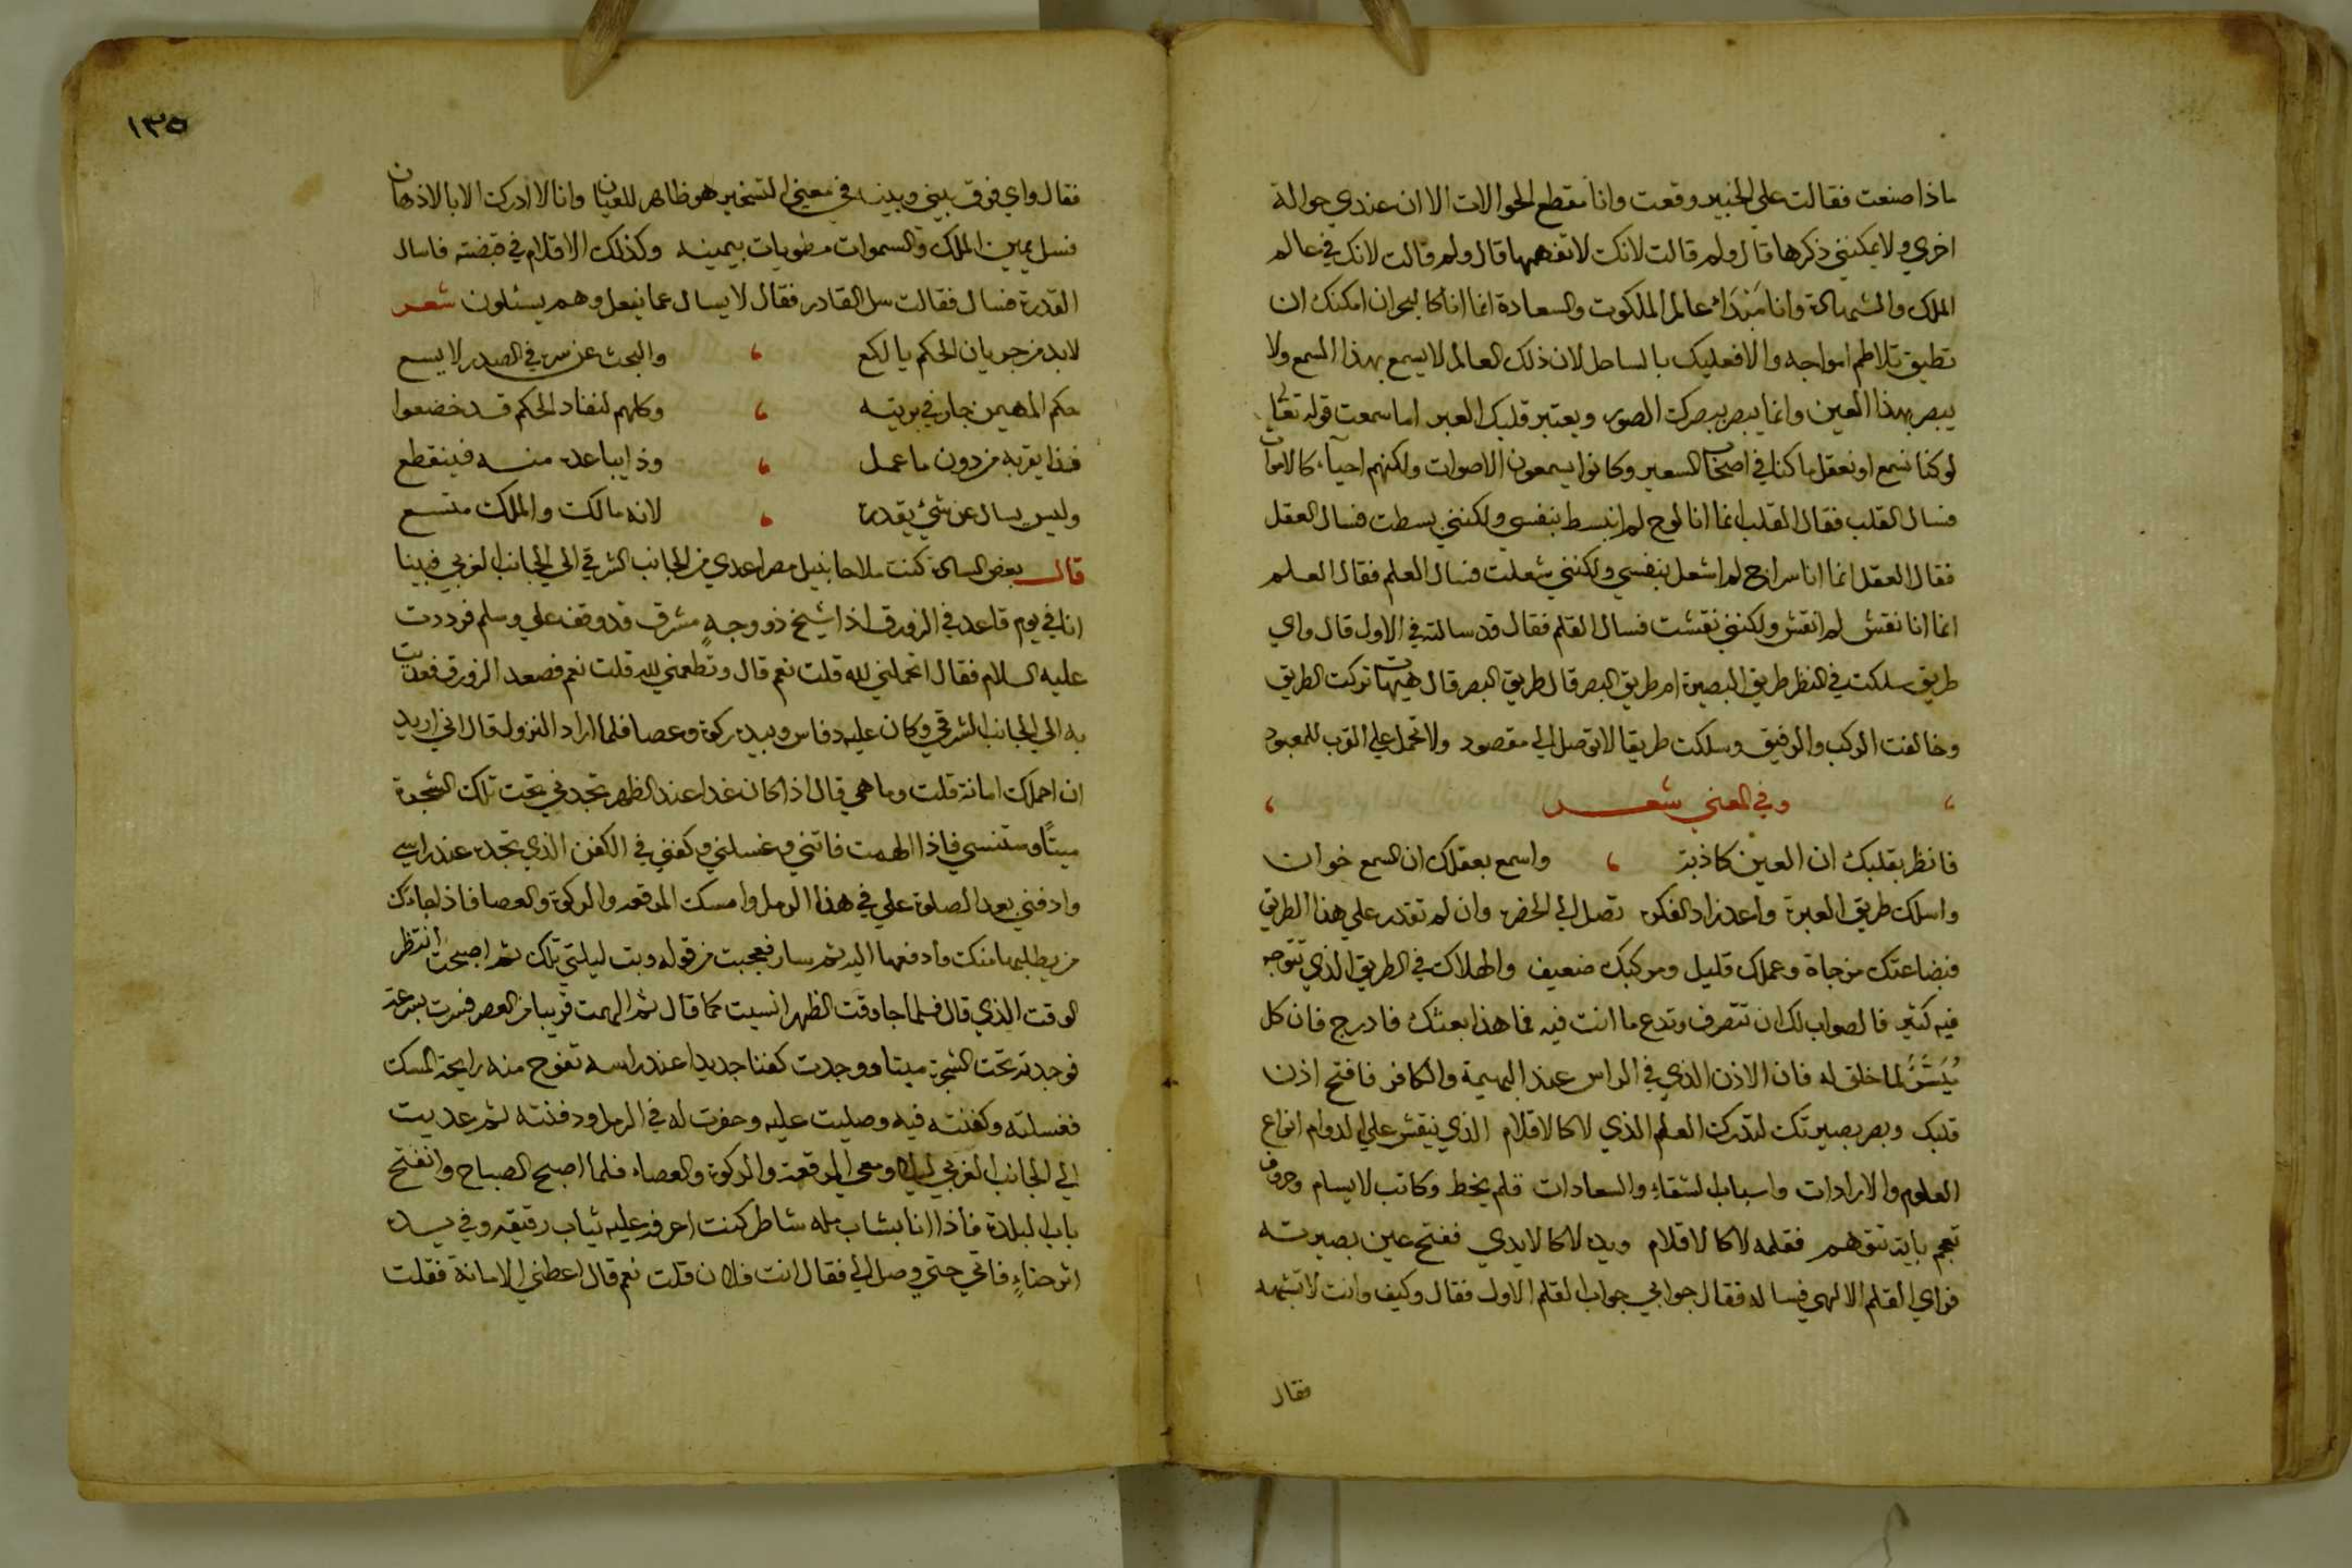 ماذا صنعت فقالت علي الخبير وقعت وانا مقطع الحوالات الا ان عندي حوالة
اخري ولا يمكنني ذكرها قال ولم قالت لانك لا تفهمها قال ولم قالت لانك في عالم
الملك والشهادة وانا عالم الملكوت والسعادة انما انا كالبحر ان امكنك ان
تطيق تلاطم امواجه والا فعليك بالساحل لان ذلك العالم لا يسمع بهذا السمع ولا
يبصر بهذا العين وانما يبصر ببصرك الصور ويعتبر قلبك العبر اما سمعت قوله تعالي
لو كنا نسمع او نعقل ما كنا في اصحاب السعير وكانوا يسمعون الاصوات ولكنهم احياء كالاموات
فسال القلب فقال القلب انما انا لوح لم انبسط بنفسي ولكنني بسطت فسال العقل
فقال العقل انما انا سراج لم اشعل بنفسي ولكنني شعلت فسال العلم فقال العلم
انما انا نقش لم انقش ولكنني نقشت فسال القلم فقال قد سالته في الاول قال واي
طريق سلكت في النظر طريق البصيرة ام طريق البصر قال طريق البصر قال هيهات تركت الطريق
وخالفت الركب والرفيق وسلكت طريقا لا توصل الي مقصود ولا تحمل علي القرب للمعبود
وفي المعني شعر
فانظر بقلبك ان العين كاذبة واسمع بعقلك ان السمع خوان
واسلك طريق العبرة واعد زاد الفكرة تصل الي الحضرة وان لم تقدر علي هذا الطريق
فبضاعتك مزجاة وعملك قليل ومركبك ضعيف والهلاك في الطريق الذي تتوجه
فيه كثير فالصواب لك ان تنصرف وتدع ما انت فيه فما هذا بعشك فادرج فان كل
ميسر لما خلق له فان الاذن الذي في الراس عند البهيمة والكافر فافتح اذن
قلبك وبصر بصيرتك لتدرك العلم الذي لا كالاقلام الذي ينقش علي الدوام انواع
العلوم والارادات واسباب الشقاء والسعادات قلم يخط وكاتب لا يسام وحروف
تعجم فقلمه لا كالاقلام ويده لا كالايدي ففتح عين بصيرته
فراي القلم الالهي فساله فقال جوابي جواب القلم الاول فقال وكيف وانت لا تشبهه
فقال
١٣٥
فقال واي فرق بيني وبينه في معني التسخير هو ظاهر للعيان وانا لا ادرك الا بالاذهان
فسل يمين الملك والسموات مطويات بيمينه وكذلك الاقلام في قبضته فاسال
القدرة فسال فقالت سل القادر فقال لا يسال عما يفعل وهم يسئلون شعر
لا بد من جريان الحكم يا لكع والبحث عن سر في الصدر لا يسع
حكم المهيمن جار في بريته وكلهم لنفاد الحكم قد خضعوا
فذا يقربه من دون ما عمل وذا يباعد منه فينقطع
وليس يسال عن شيء يقدره لانه مالك والملك متسع
قال بعض السادة كنت ملاحا بنيل مصر اعدي من الجانب الشرقي الي الجانب الغربي فبينا
انا في يوم قاعد في الزورق اذا شيخ ذو وجه مشرق قد وقف علي وسلم فرددت
عليه السلام فقال اتحملني لله قلت نعم قال وتطعمني لله قلت نعم فصعد الزورق فعديت
به الي الجانب الشرقي وكان عليه دفاس وبيده ركوة وعصا فلما اراد النزول قال اني اريد
ان احملك امانة قلت وما هي قال اذا كان غدا عند الظهر تجدني تحت تلك الشجرة
ميتا وستنسي فاذا الهمت فاتني وغسلني وكفني في الكفن الذي تجده عند راسي
وادفني بعد الصلوة علي في هذا الرمل وامسك المرقعة والركوة والعصا فاذا جاءك
من يطلبهما منك فادفعهما اليه ثم سار فعجبت من قوله وبت ليلتي تلك ثم اصبحت انتظر
الوقت الذي قال فلما جا وقت الظهر انسيت كما قال ثم الهمت قريبا من العصر فسرت بسرعة
فوجدته تحت الشجرة ميتا ووجدت كفنا جديدا عند راسه تفوح منه رايحة المسك
فغسلته وكفنته فيه وصليت عليه وحفرت له في الرمل ودفنته ثم عديت
الي الجانب الغربي ليلا ومعي المرقعة والركوة والعصاء فلما اصبح الصباح وانفتح
باب البلدة فاذا انا بشاب شاطر كنت اعرفه عليه ثياب رقيقة وفي يده
اثر حناء فاتي حتي وصل الي فقال انت فلان قلت نعم قال اعطني الامانة فقلت